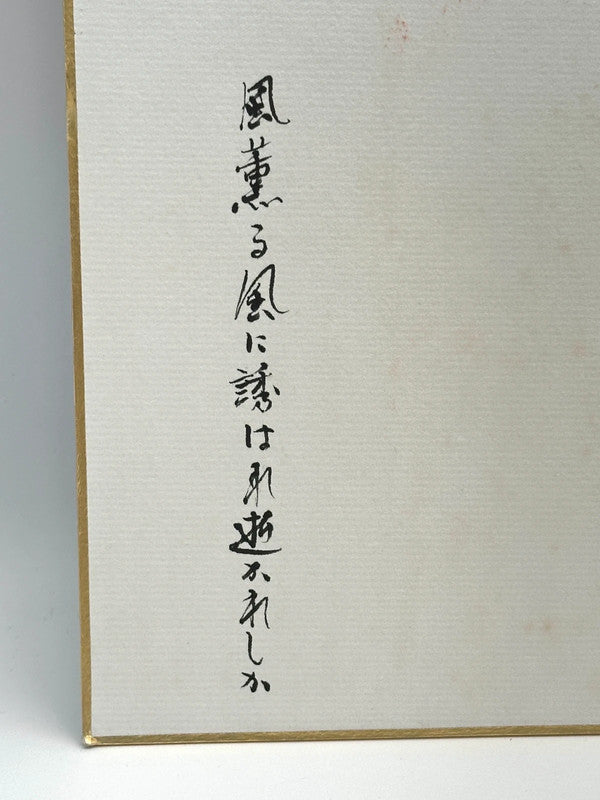 風薫る風に誘はれ逝かれしか